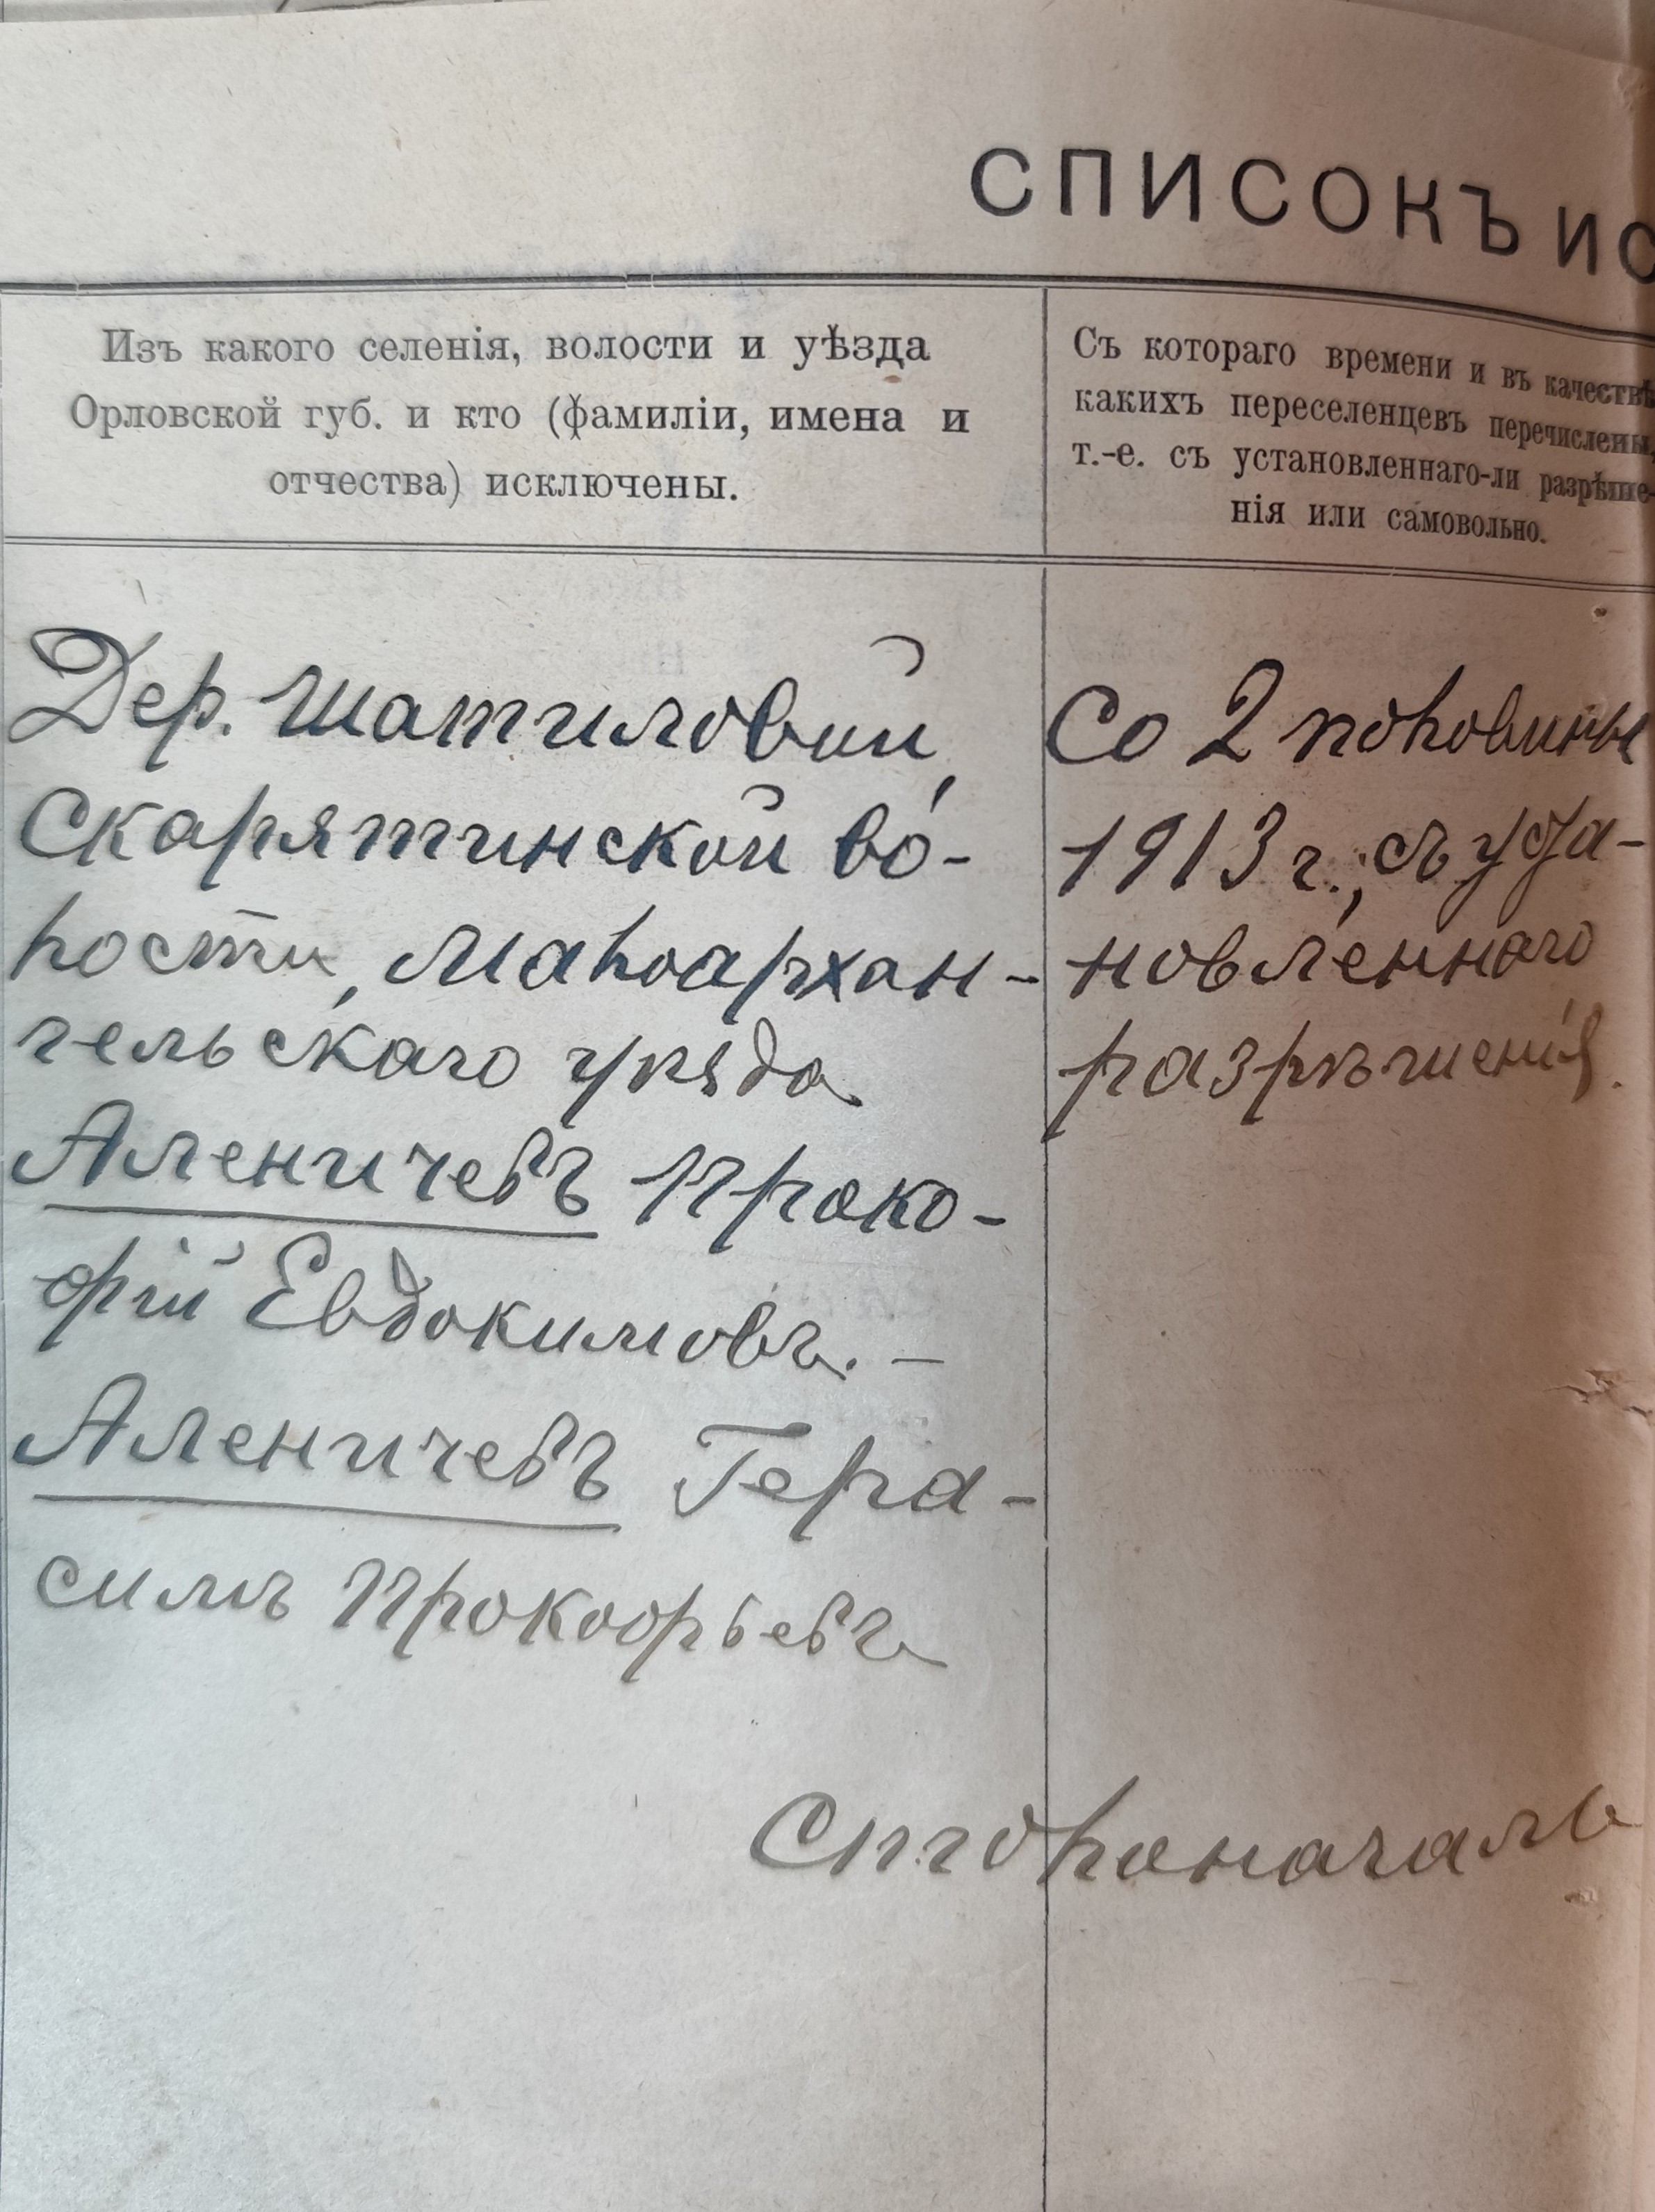 СПИСОКЪ ИС
Изъ какого селенія, волости и уѣзда
Орловской губ. и кто (фамиліи, имена и
отчества) исключены.
Съ котораго времени и въ качествѣ
какихъ переселенцевъ перечислены,
т.-е. съ установленнаго-ли разрѣше-
нія или самовольно.
Дер. Шатиловой,
Скарятинской во-
лости, Малоархан-
гельскаго уѣзда
Аленичевъ Проко-
фій Евдокимовъ. –
Аленичевъ Гера-
симъ Прокофьевъ
Со 2 половины
1913 г., съ уста-
новленнаго
разрѣшенія.
Столоначаль